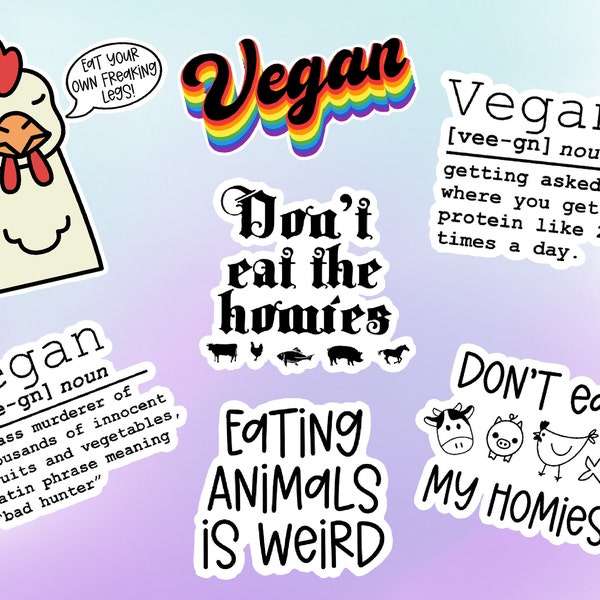 EAT YOUR
OWN FREAKING
LEGS!
Vegan
Vegan
[vee-gn] noun
getting asked
where you get
protein like 2
times a day.
Don't
eat the
homies
egan
e-gn] noun
ass murderer of
ousands of innocent
uits and vegetables,
atin phrase meaning
"bad hunter"
EATING
ANIMALS
IS WEIRD
DON'T ea
MY HOMIES